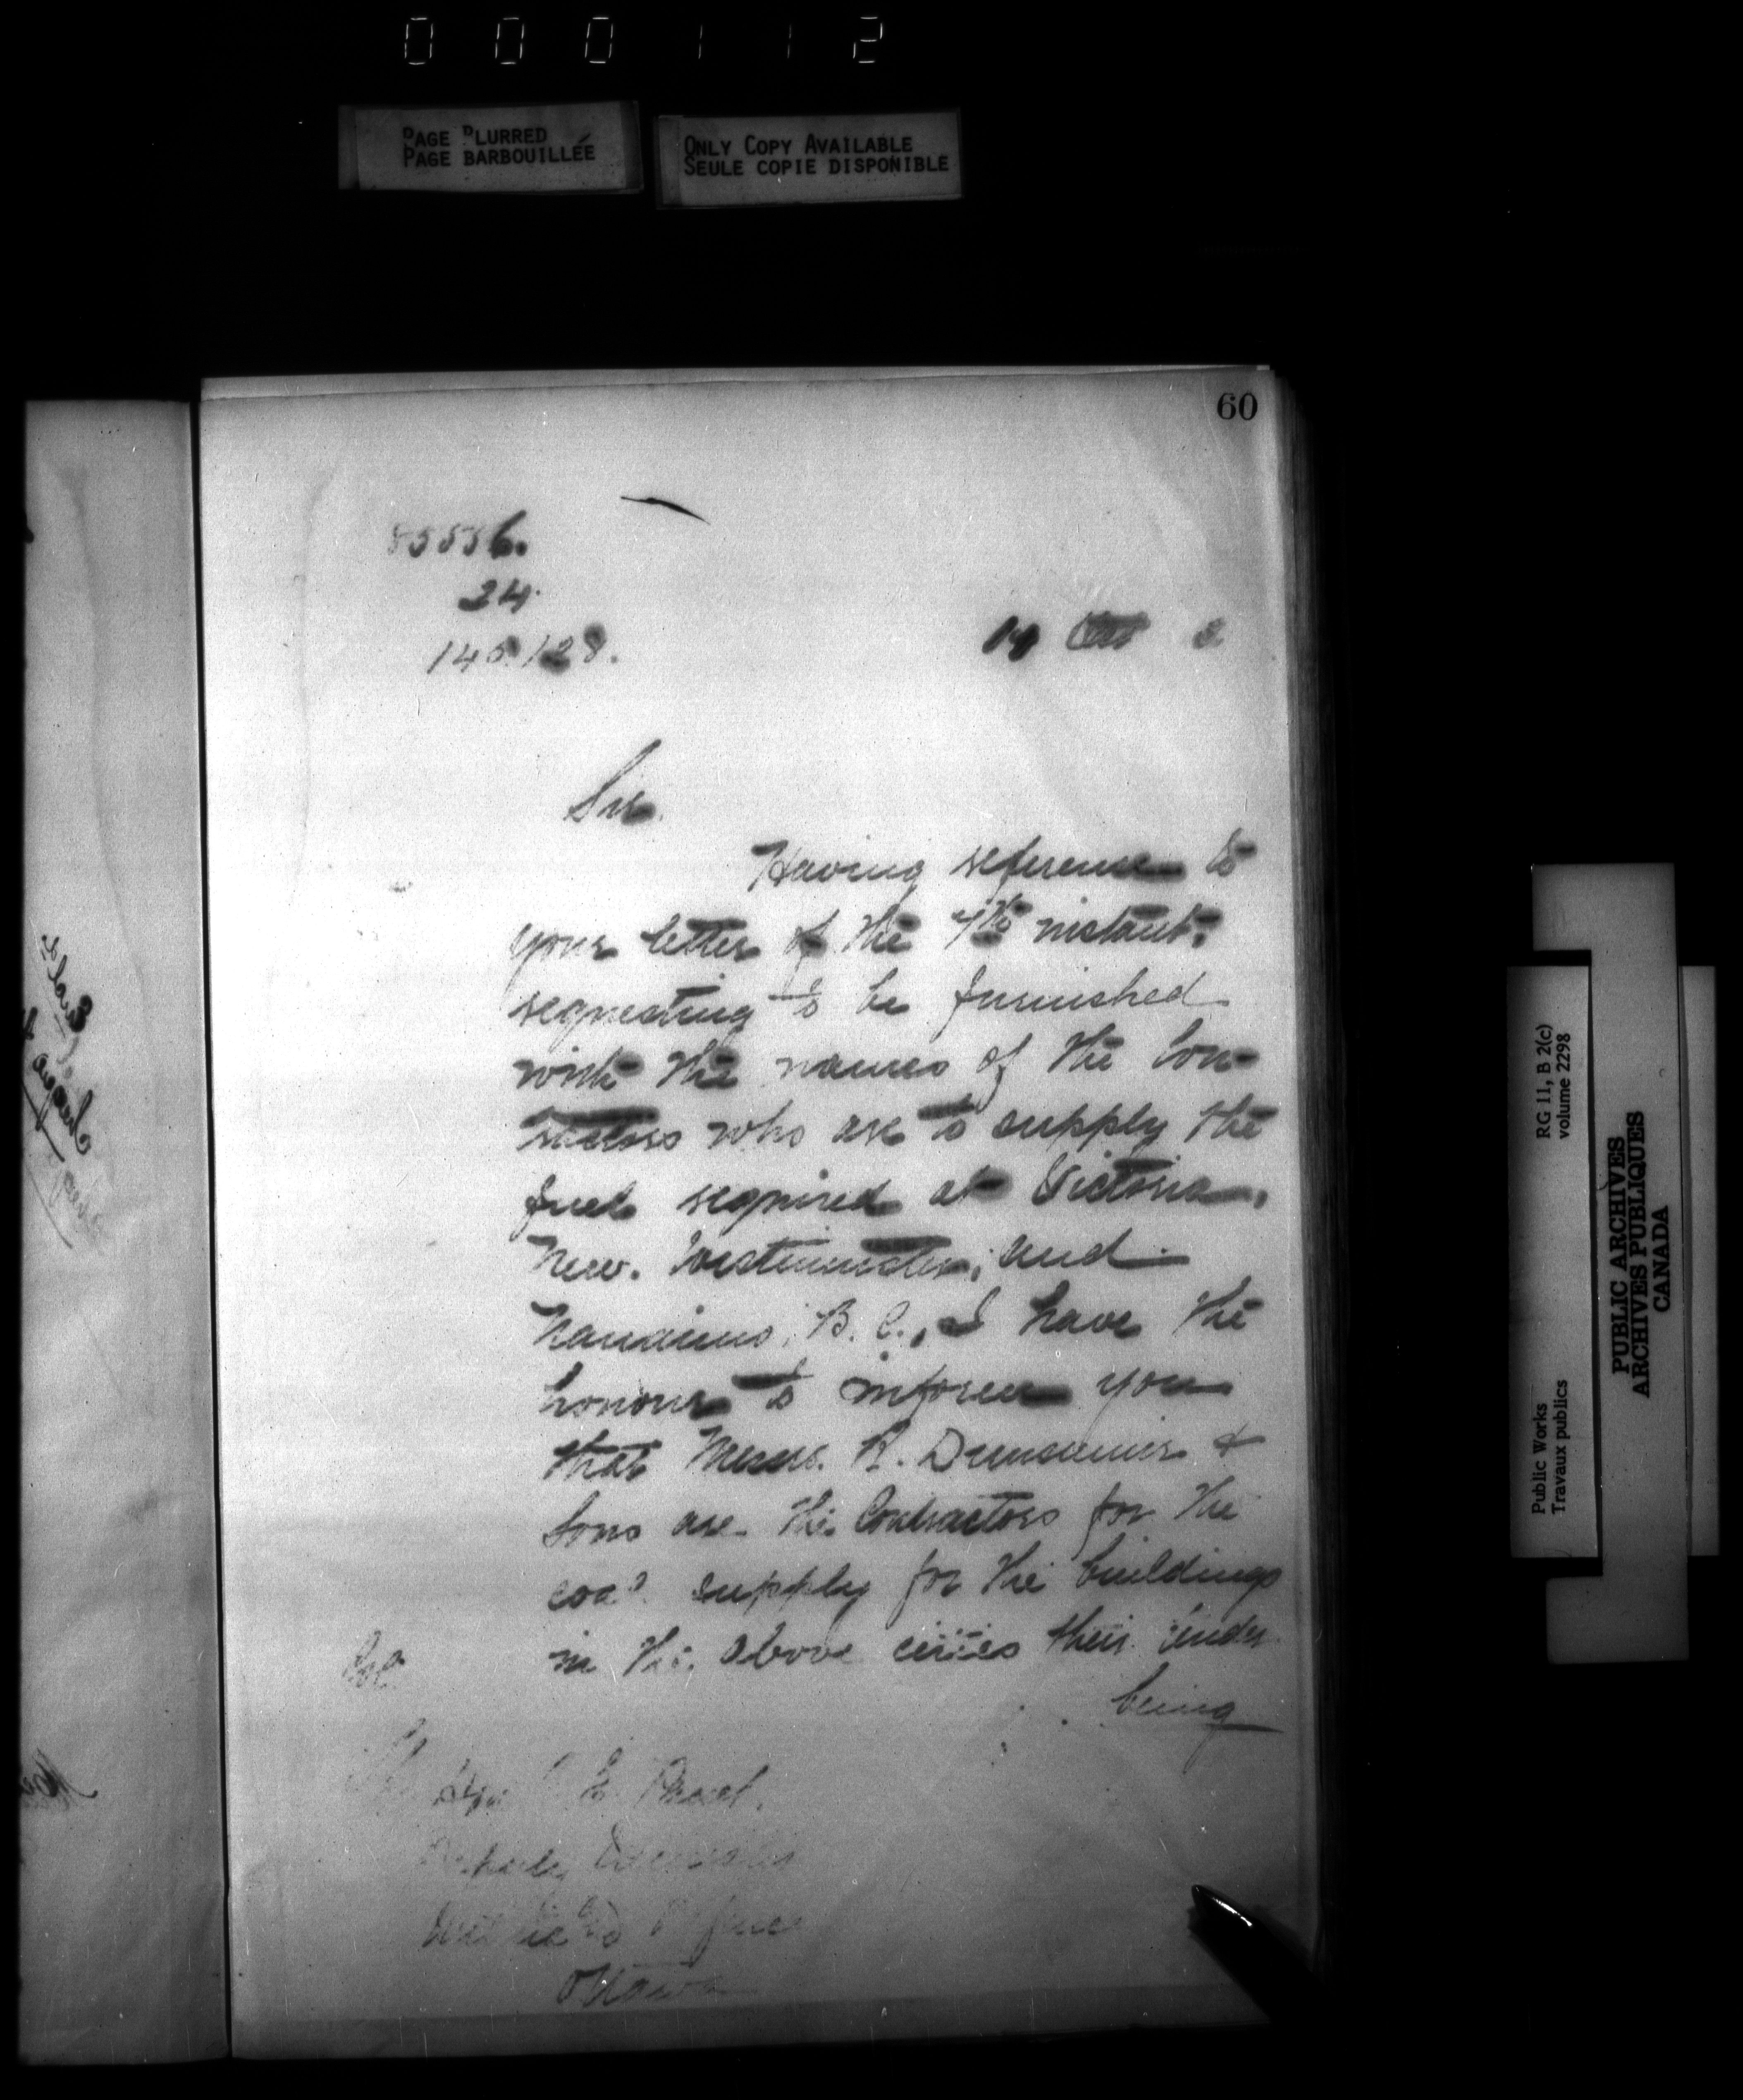 000112
PAGE BLURRED
PAGE BARBOUILLÉE
ONLY COPY AVAILABLE
SEULE COPIE DISPONIBLE
60
85556.
24.
145.128.
Sir
Having reference to
your letter of the 7th instant,
requesting to be furnished
with the names of the Con-
tractors who are to supply the
fuel required at Victoria,
New. Westminster, and
Nanaimo, B.C., I have the
honour to inform you
that Messrs. R. Dunsmuir &
Sons are the Contractors for the
coal supply for the buildings
in the above cities their tender
being
Ottawa
Public Works
Travaux publics
RG 11, B 2(c)
volume 2298
PUBLIC ARCHIVES
ARCHIVES PUBLIQUES
CANADA